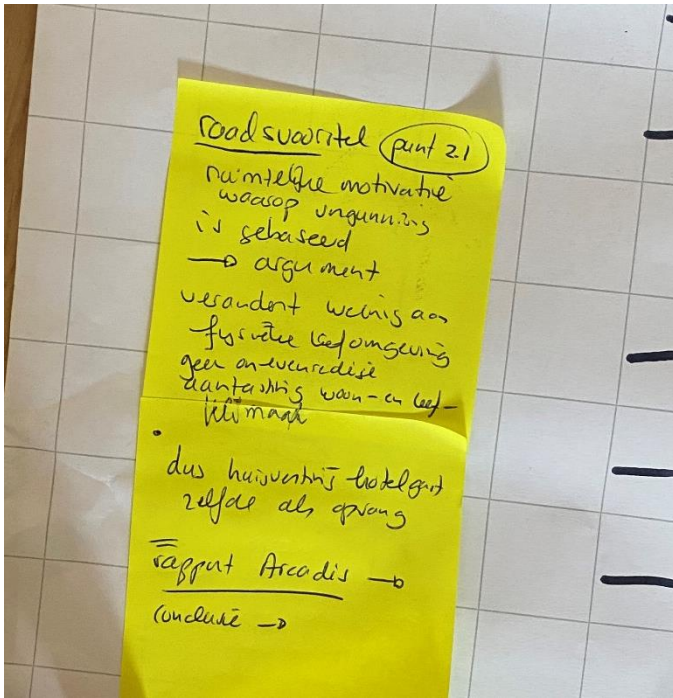 raadsvoorstel punt 2.1
ruimtelijke motivatie
waarop vergunning
is gebaseerd
→ argument
verandert weinig aan
fysieke leefomgeving
geen onevenredige
aantasting woon- en leef-
klimaat
dus huisvesting hotelgast
zelfde als opvang
rapport Arcadis →
conclusie →